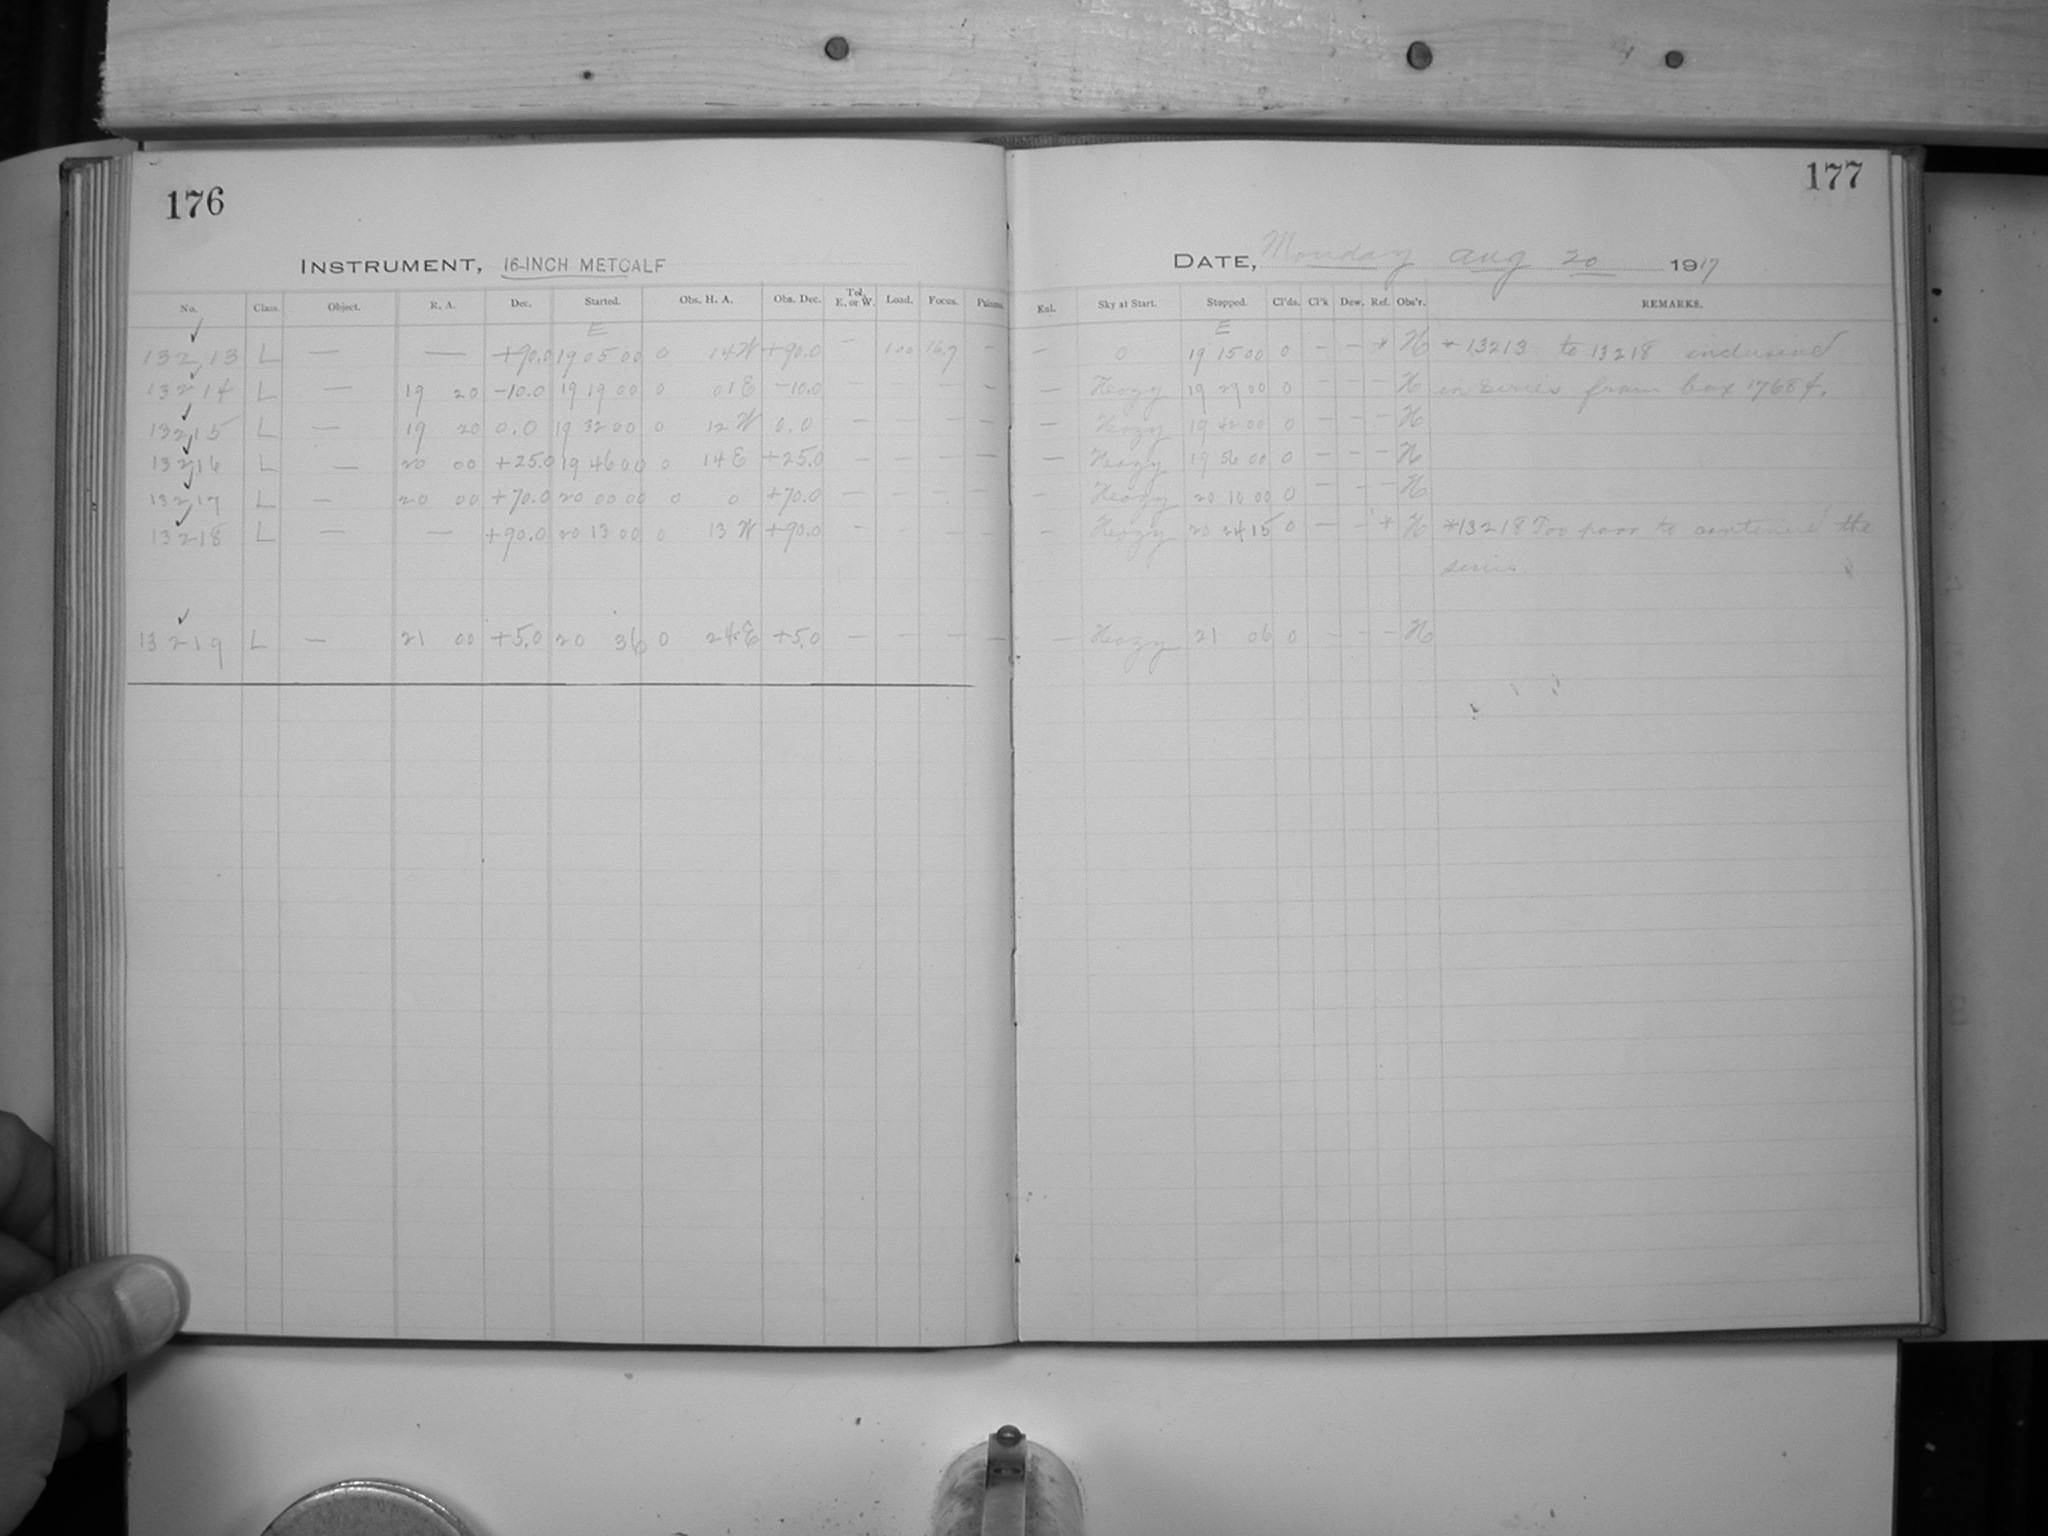 176
INSTRUMENT, 16-INCH METCALF
No. Class. Object. R. A. Dec. Started. Obs. H. A. Obs. Dec. Tel. E. or W. Load. Focus. Prisms.
E
13213 L — — +90.0 19 05 00 0 14 W +90.0 — 100 16.7 —
13214 L — 19 20 -10.0 19 19 00 0 01 E -10.0 — —
13215 L — 19 20 0.0 19 32 00 0 12 W 0.0 — — — —
13216 L — 20 00 +25.0 19 46 00 0 14 E +25.0 — — — —
13217 L — 20 00 +70.0 20 00 00 0 0 +70.0 — — — —
13218 L — — +90.0 20 13 00 0 13 W +90.0 — — — —
13219 L — 21 00 +5.0 20 36 0 24 E +5.0 — — — —
177
DATE, Monday Aug 20 1917
Sky at Start. Stopped. Cl'ds. Cl'k Dew. Ref. Obs'r. REMARKS.
E
— 0 19 15 00 0 — — * H * 13213 to 13218 inclusive
— Hazy 19 29 00 0 — — — H in series from box 17684.
— Hazy 19 42 00 0 — — — H
— Hazy 19 56 00 0 — — — H
— Hazy 20 10 00 0 — — — H
— Hazy 20 24 15 0 — — * H *13218 Too poor to continue the
series.
— Hazy 21 06 0 — — — H